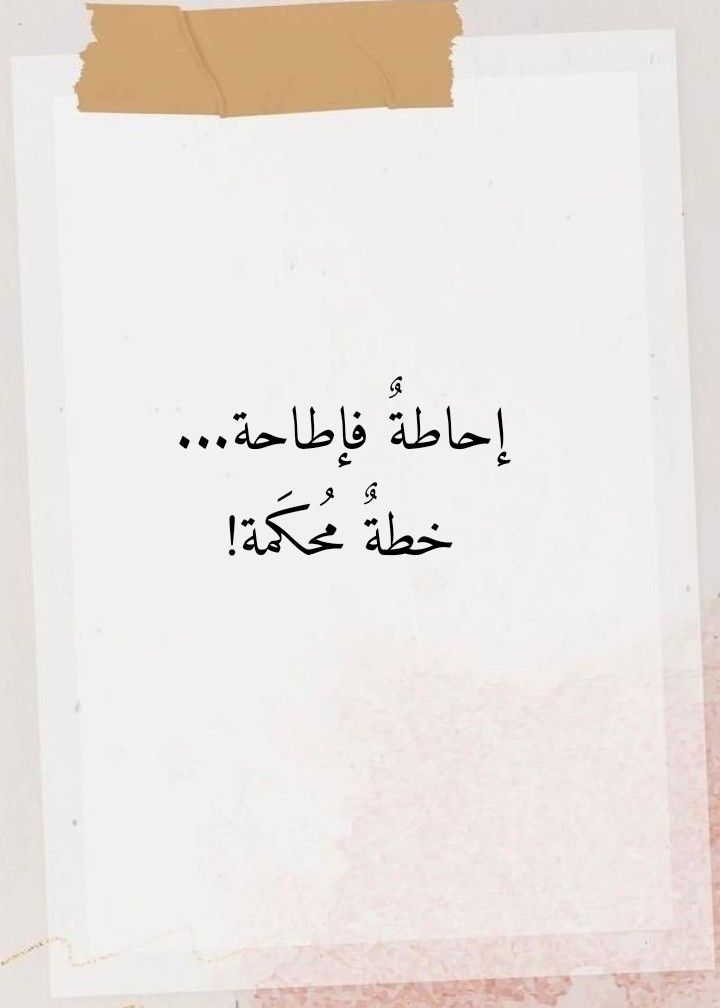 إحاطةٌ فإطاحة...
خطةٌ مُحكَمة!